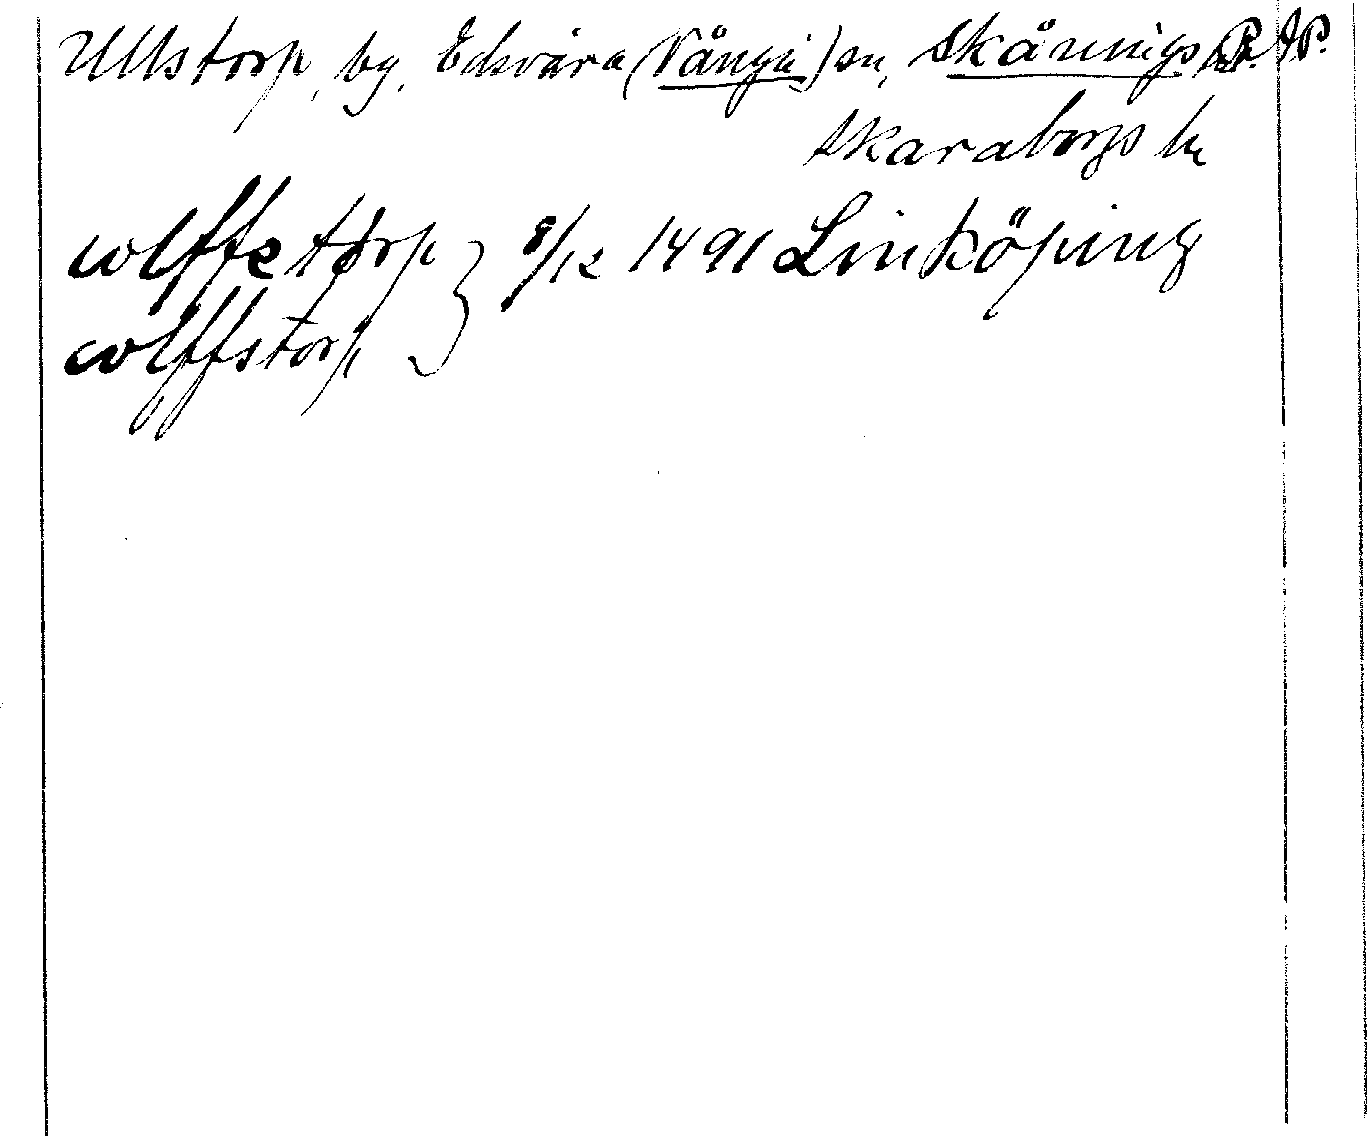 Ullstorp, by, Edsvära (Vånga) sn, Skånings hd. R.A.P.
Skaraborgs ln
wlffstorp } 8/12 1491 Linköping
wlffstorp